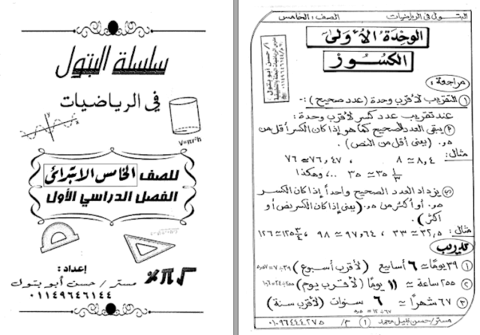 سلسلة البتول
في الرياضيات
V=πr²h
للصف الخامس الابتدائي
الفصل الدراسي الأول
إعداد:
مستر/ حسن أبو بتول
٠١١٤٩٦٤٦١٤٤
البتول في الرياضيات
الصف: الخامس
الوحدة الأولى
الكسور
مراجعة:
١ التقريب لأقرب وحدة (عدد صحيح):-
عند تقريب عدد كسر لأقرب وحدة:
يبقى العدد الصحيح كما هو إذا كان الكسر أقل من
٠,٥ (يعني أقل من النص)
مثال:
٨,٤ ≃ ٨ ، ٧٦,٤٧ ≃ ٧٦
٣٥ ⅓ ≃ ٣٥ ... وهكذا
يزداد العدد الصحيح واحداً إذا كان الكسر
٠,٥ أو أكثر من ٠,٥ (يعني إذا كان الكسر نص أو
أكثر)
مثال:
٣٢,٥ ≃ ٣٣ ، ٩٧,٦٤ ≃ ٩٨ ، ١٢٥ ≃ ١٢٦
تدريب
١ ٣٩ يوماً ≃ ٦ أسابيع (لأقرب أسبوع)
٢ ٢٥٥ ساعة ≃ ١١ يوماً (لأقرب يوم)
٣ ٦٧ شهراً ≃ ٦ سنوات (لأقرب سنة)
مستر/ حسن نبيل محمد
١
م/